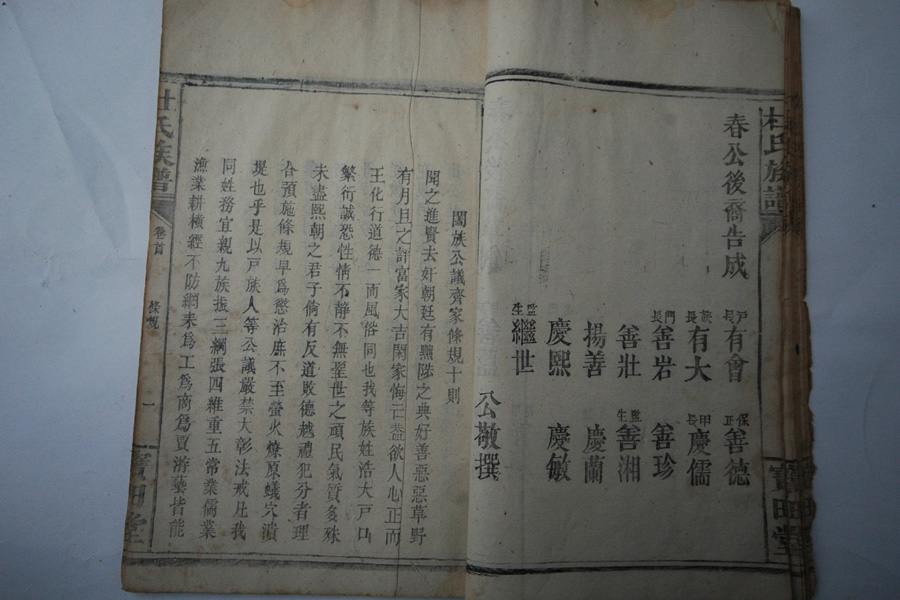 杜氏族譜
寶田堂
春公後裔告成
戶長有會 保正善德
族長有大 甲長慶儒
門長善岩 善珍
善壯 監生善湘
揚善 慶蘭
慶熙 慶敏
監生繼世 公敬撰
闔族公議齊家條規十則
聞之進賢去奸朝廷有黜陟之典好善惡惡草野
有月旦之評富家大吉閑家悔亡蓋欲人心正而
王化行道德一而風俗同也我等族姓浩大戶口
繁衍誠恐性情不靜不無聖世之頑民氣質多殊
未盡熙朝之君子倘有反道敗德越禮犯分者理
合預施條規早爲懲治庶不至螢火燎原蟻穴潰
堤也乎是以戶族人等公議嚴禁大彰法戒凡我
同姓務宜親九族振三綱張四維重五常業儒業
漁業耕橫經不防網耒爲工爲商爲賈游藝皆能
杜氏族譜
卷首
條規
一
寶田堂